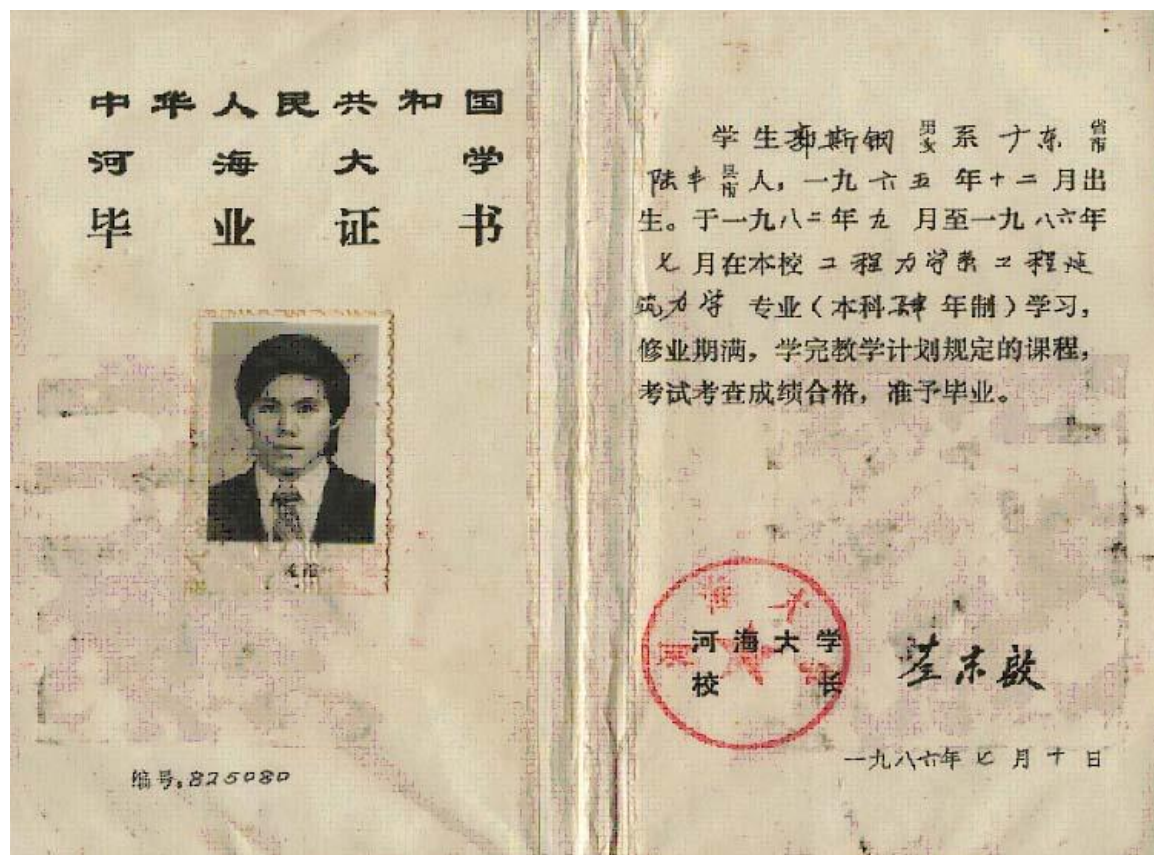 中华人民共和国
河海大学
毕业证书
编号.825080
学生郭斯钢 男女 系 广东 省市
陆丰 县市 人，一九六五年十二月出
生。于一九八二年九月至一九八六年
七月在本校工程力学系工程建
筑力学 专业（本科肆年制）学习，
修业期满，学完教学计划规定的课程，
考试考查成绩合格，准予毕业。
河海大学
校长
一九八六年七月十日